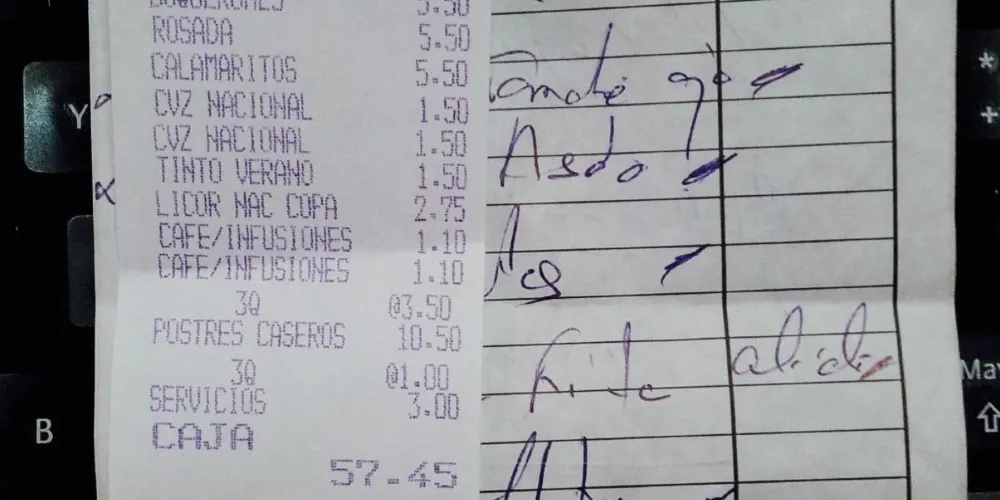 BOQUERONES 5.50
ROSADA 5.50
CALAMARITOS 5.50
CVZ NACIONAL 1.50
CVZ NACIONAL 1.50
TINTO VERANO 1.50
LICOR NAC COPA 2.75
CAFE/INFUSIONES 1.10
CAFE/INFUSIONES 1.10
3Q @3.50
POSTRES CASEROS 10.50
3Q @1.00
SERVICIOS 3.00
CAJA
57.45
Asdo
Y
B
*
+
May
⇧